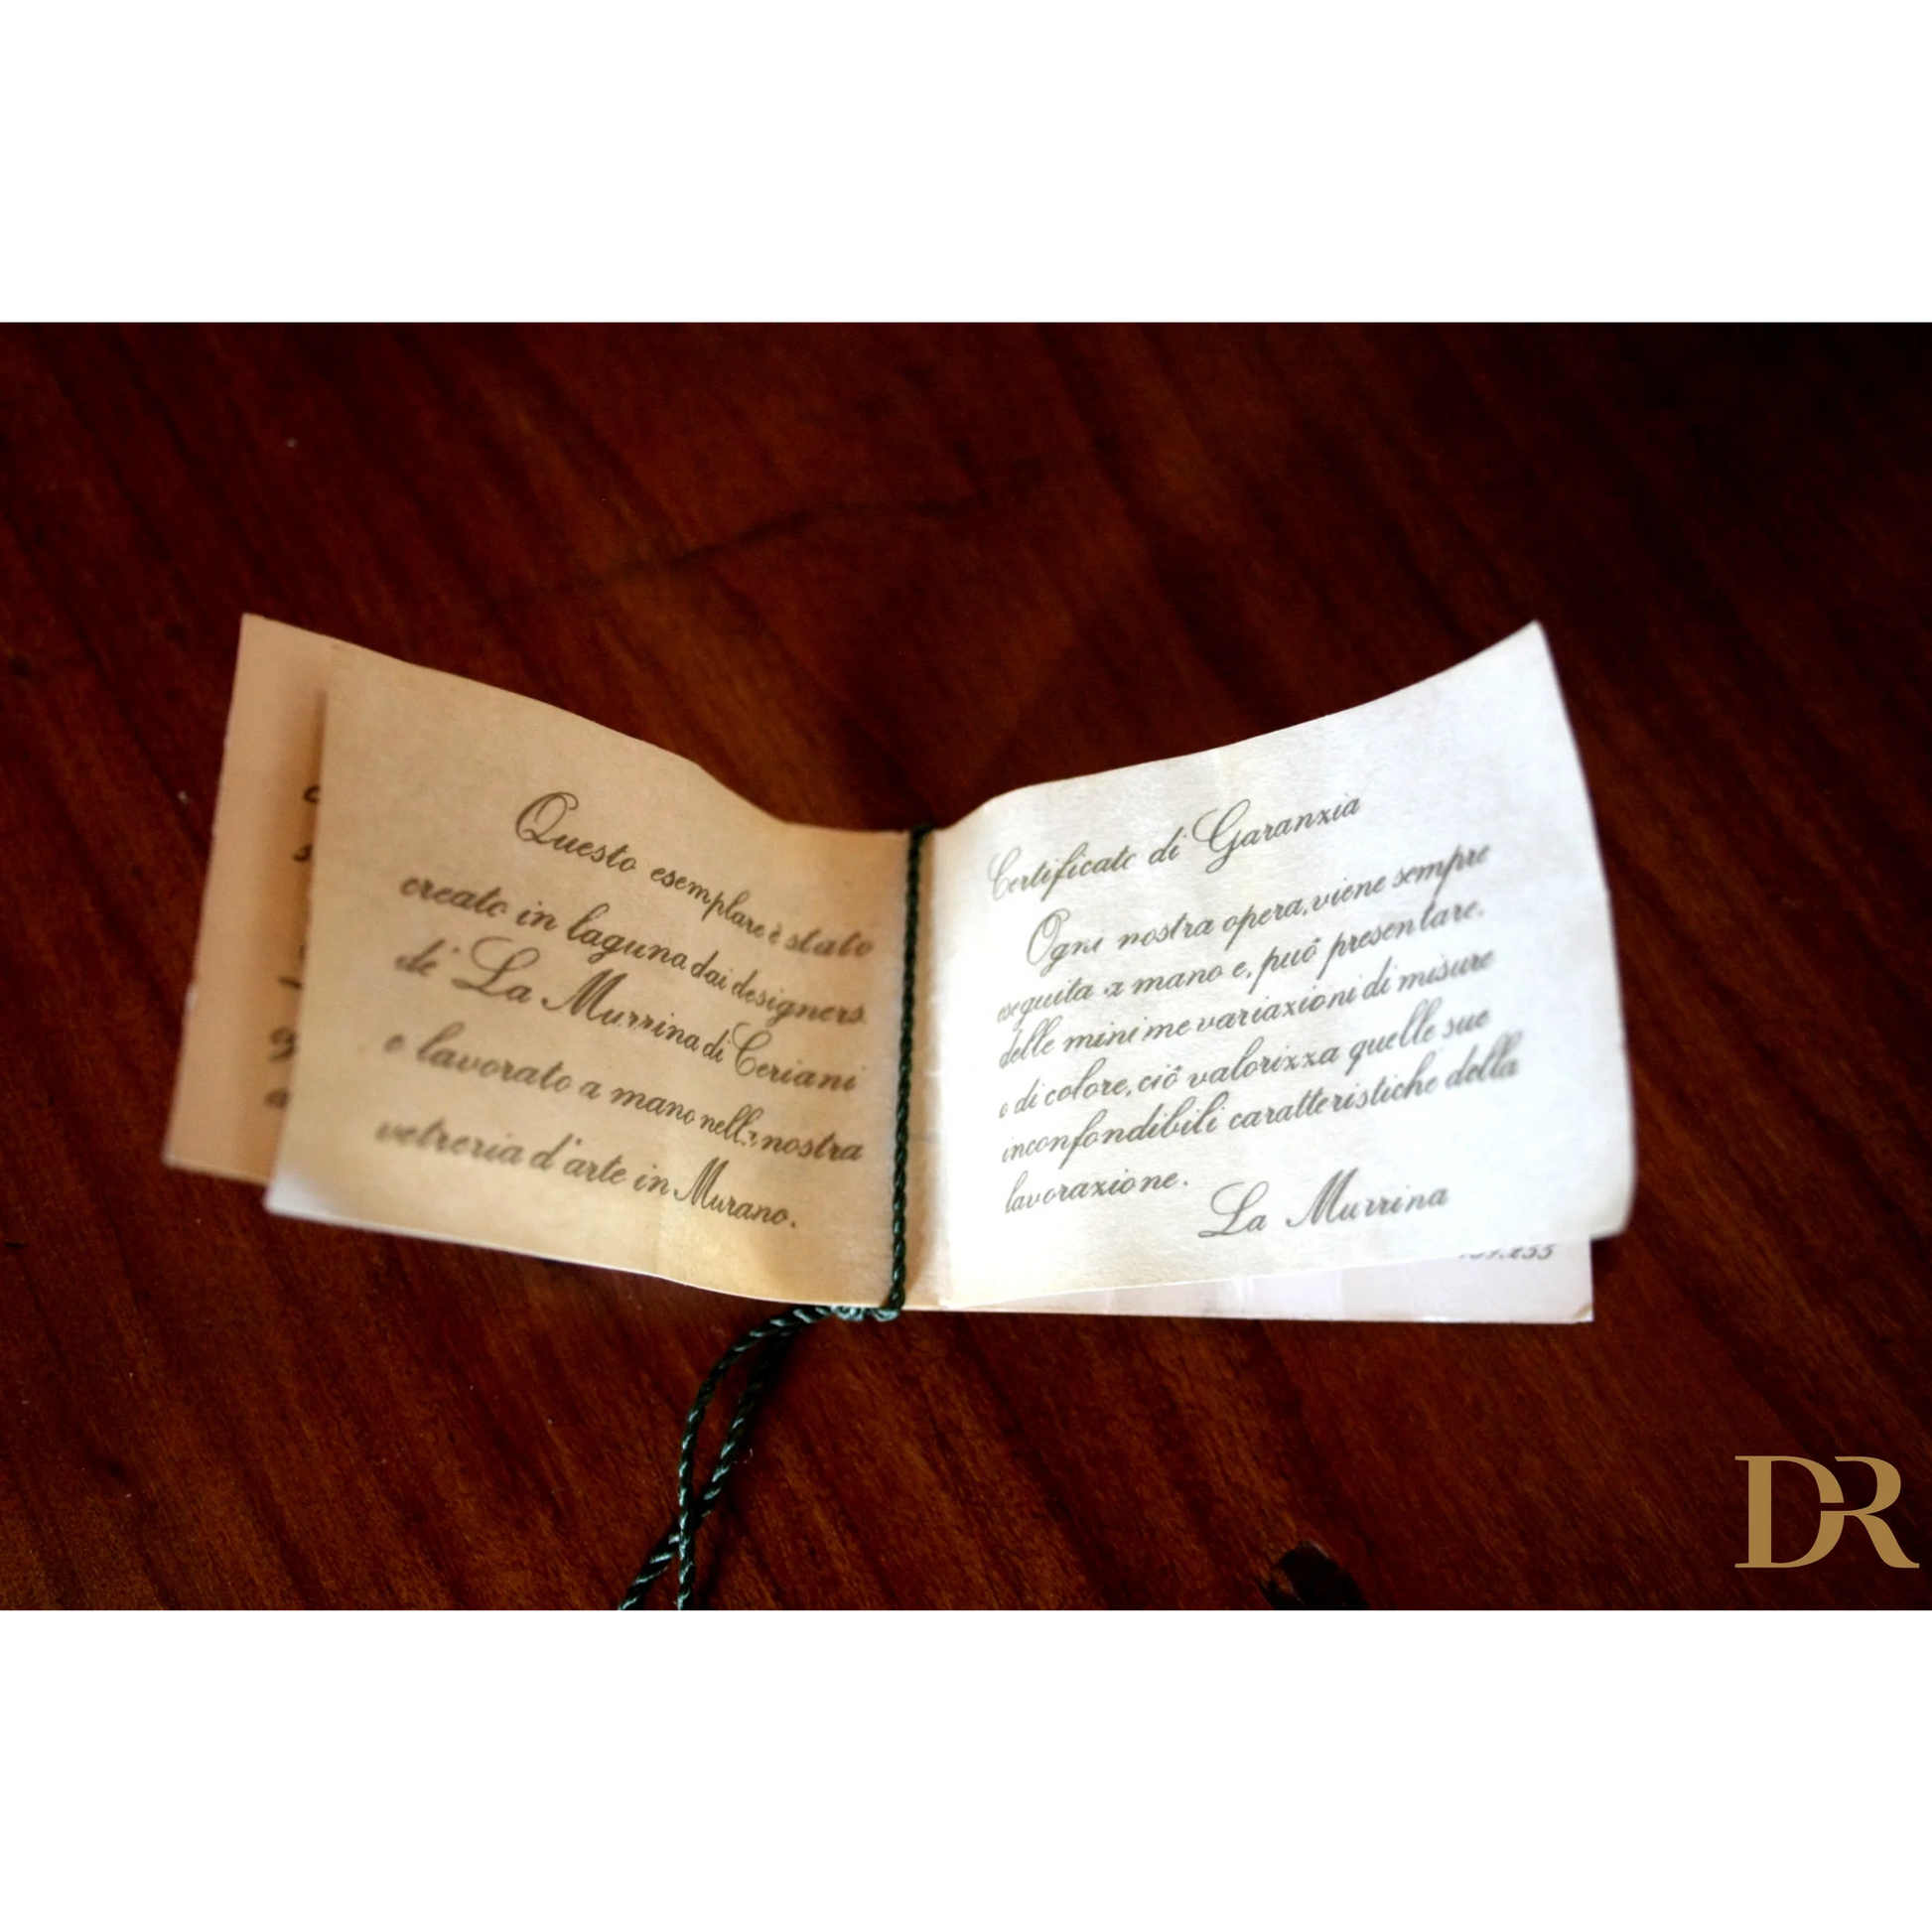 Questo esemplare è stato
creato in laguna dai designers
de' La Murrina di Ceriani
e lavorato a mano nella nostra
vetreria d'arte in Murano.
Certificato di Garanzia
Ogni nostra opera, viene sempre
eseguita a mano e, può presentare,
delle minime variazioni di misure
o di colore, ciò valorizza quelle sue
inconfondibili caratteristiche della
lavorazione.
La Murrina
DR